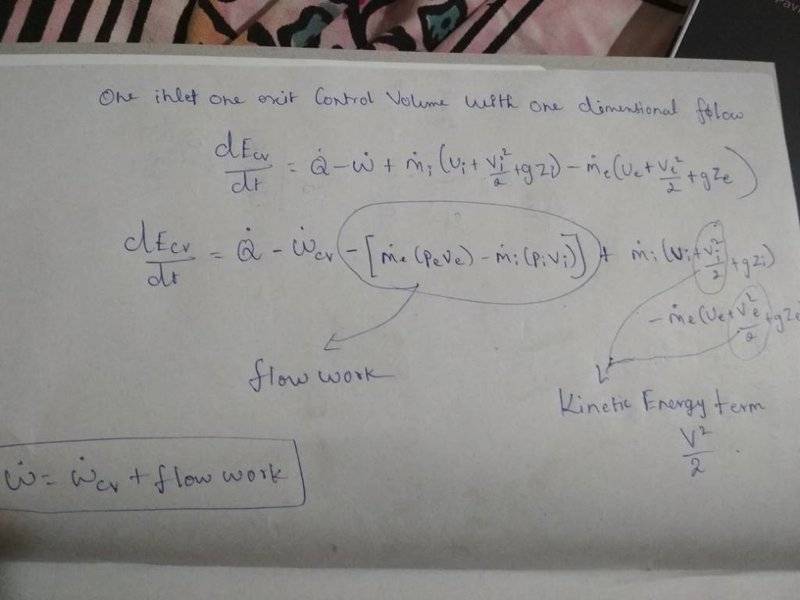 Pavi
One inlet one exit Control Volume with one dimentional flow
dEcv/dt = Q̇ - Ẇ + ṁi (ui + Vi²/2 + gzi) - ṁe (ue + Ve²/2 + gze)
dEcv/dt = Q̇ - Ẇcv - [ṁe (peve) - ṁi (pivi)] + ṁi (ui + Vi²/2 + gzi)
- ṁe (ue + Ve²/2 + gze
flow work
Kinetic Energy term
V²/2
Ẇ = Ẇcv + flow work